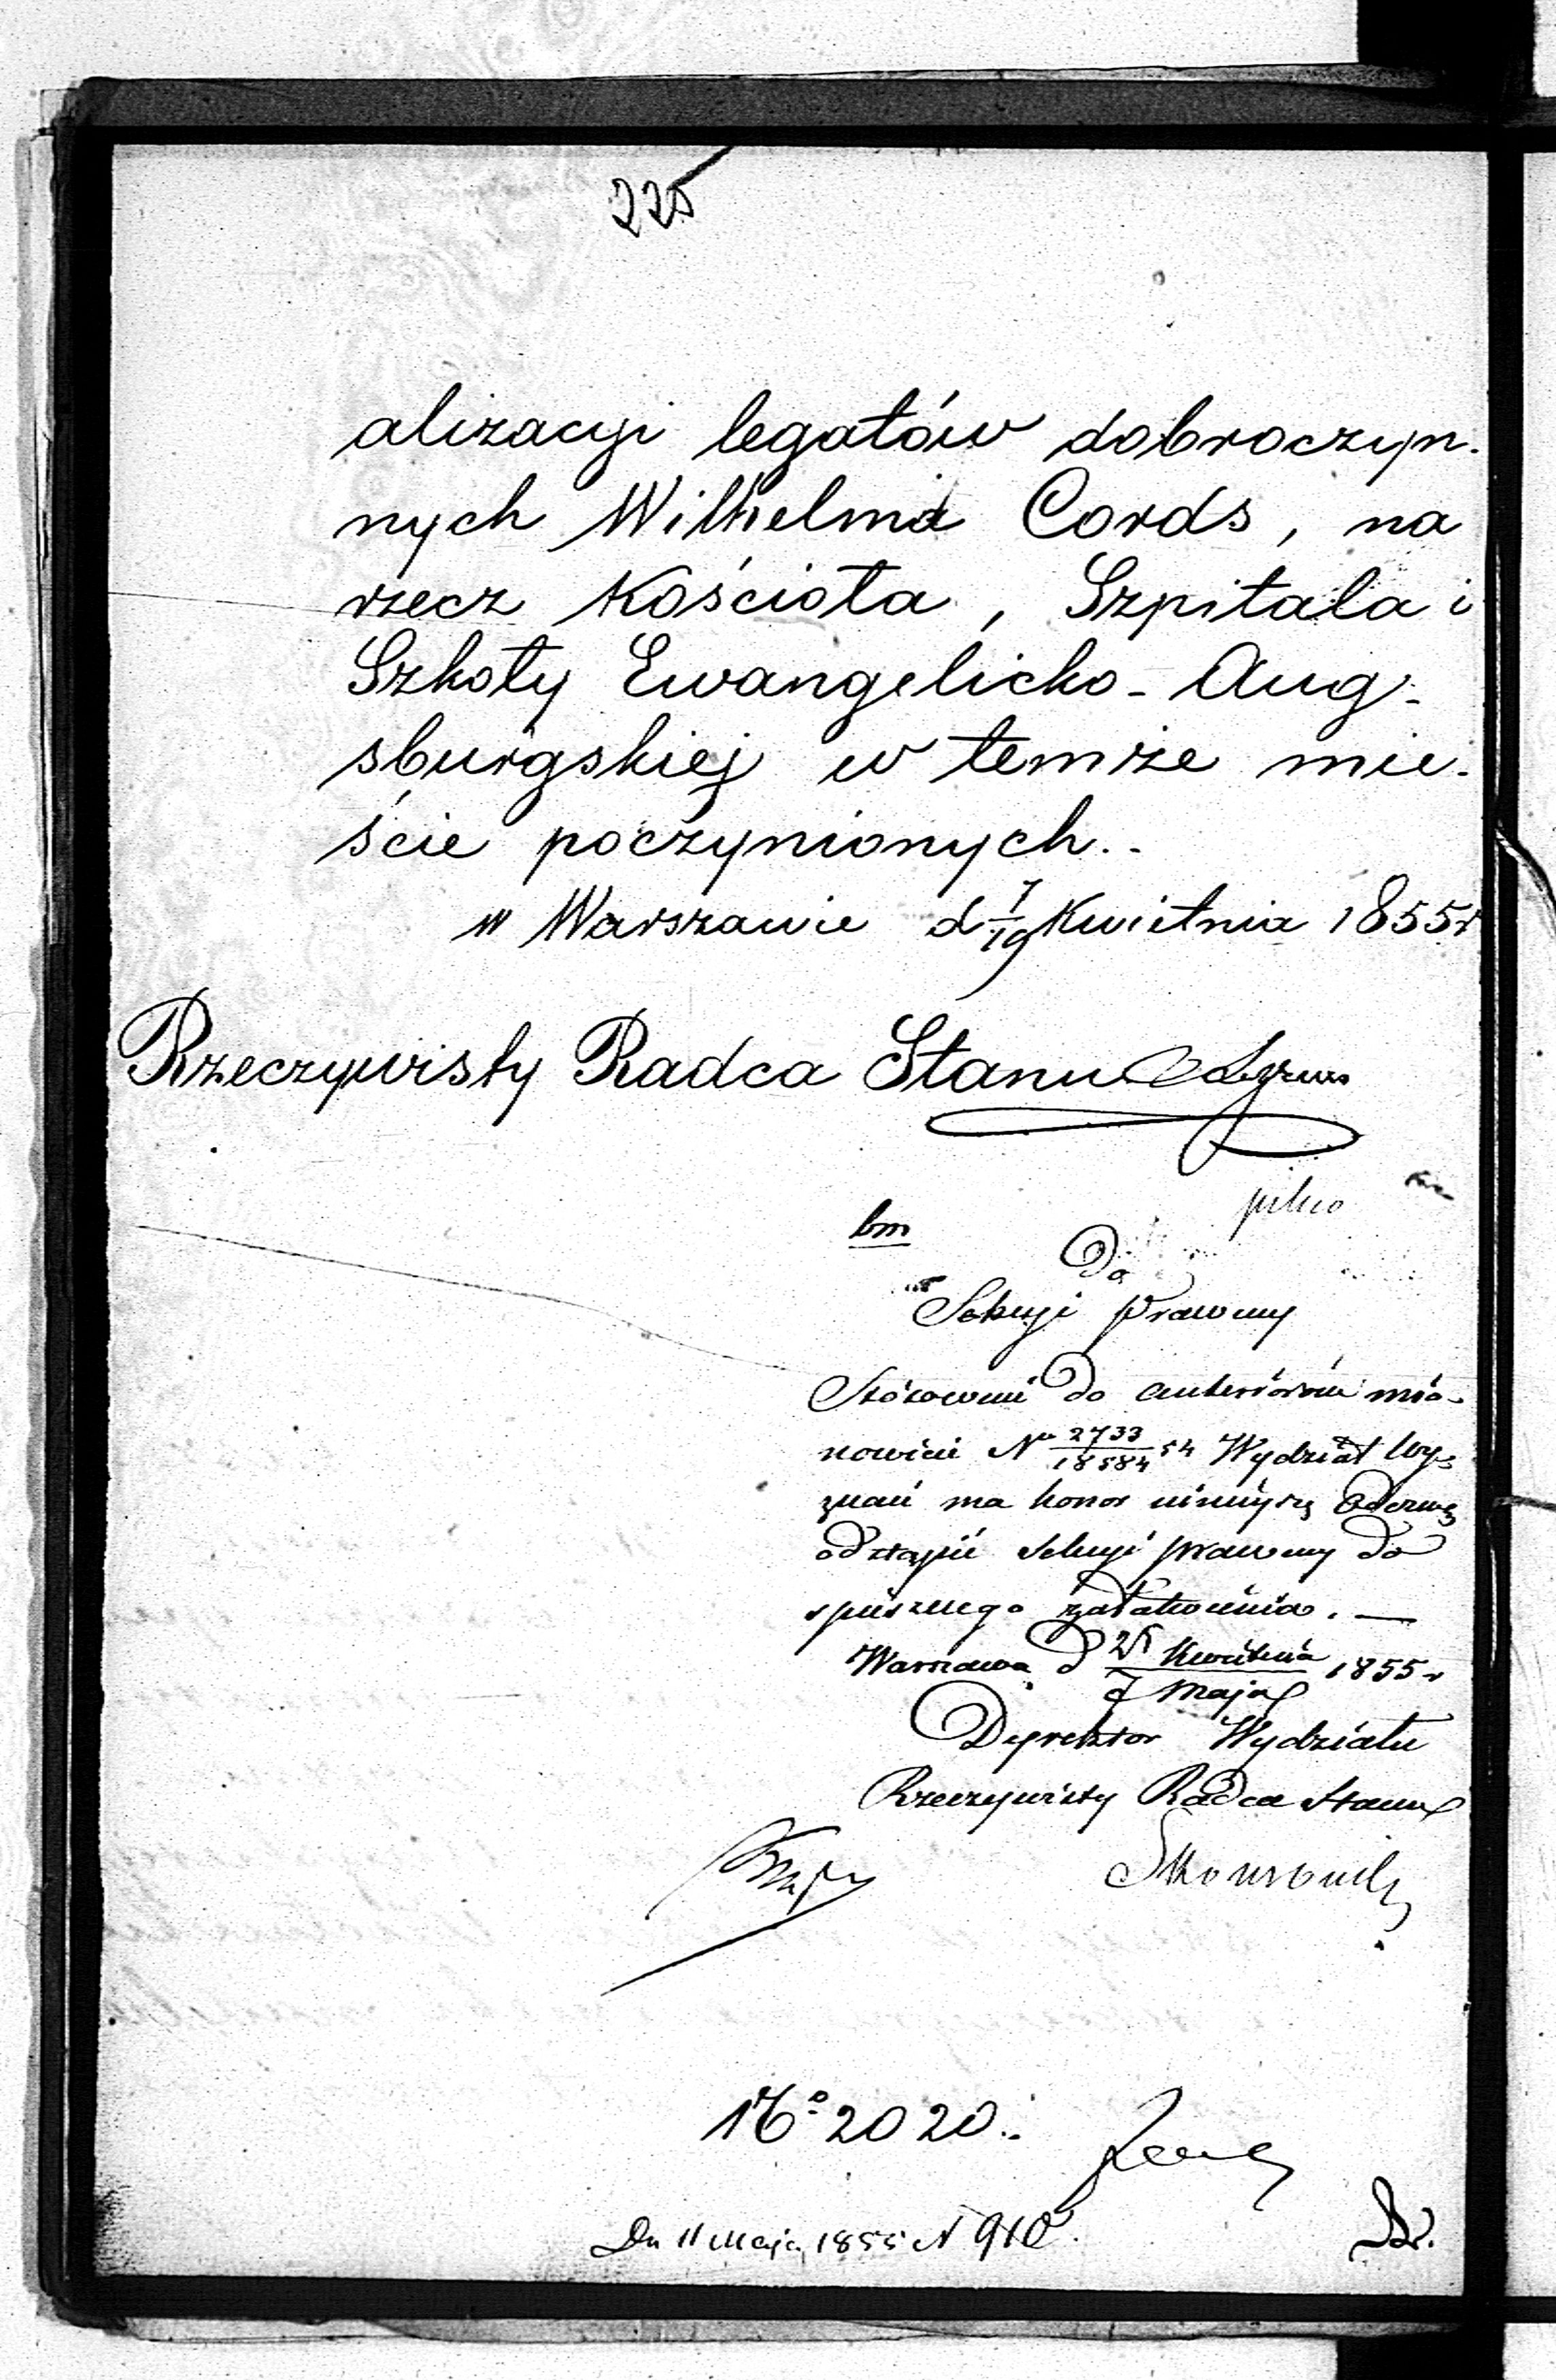 225
alizacyi legatów dobroczyn-
nych Wilhelma Cords, na
rzecz Kościoła, Szpitala i
Szkoły Ewangelicko-Aug-
sburgskiej w temże mie-
ście poczynionych.
w Warszawie d 7/19 Kwietnia 1855 r
Rzeczywisty Radca Stanu
pilno
bm
Do
Sekcyi Prawney
Stósownie do anteriorów mia-
nowicie No 2733/18584 54 Wydział Wy-
znań ma honor niniejszą Odezwę
odstąpić Sekcyi prawney do
spiesznego załatwienia. —
Warszawa d 25 Kwietnia/7 Maja 1855 r
Dyrektor Wydziału
Rzeczywisty Radca Stanu
No 2020.
Dn 11 Maja 1855 N 910